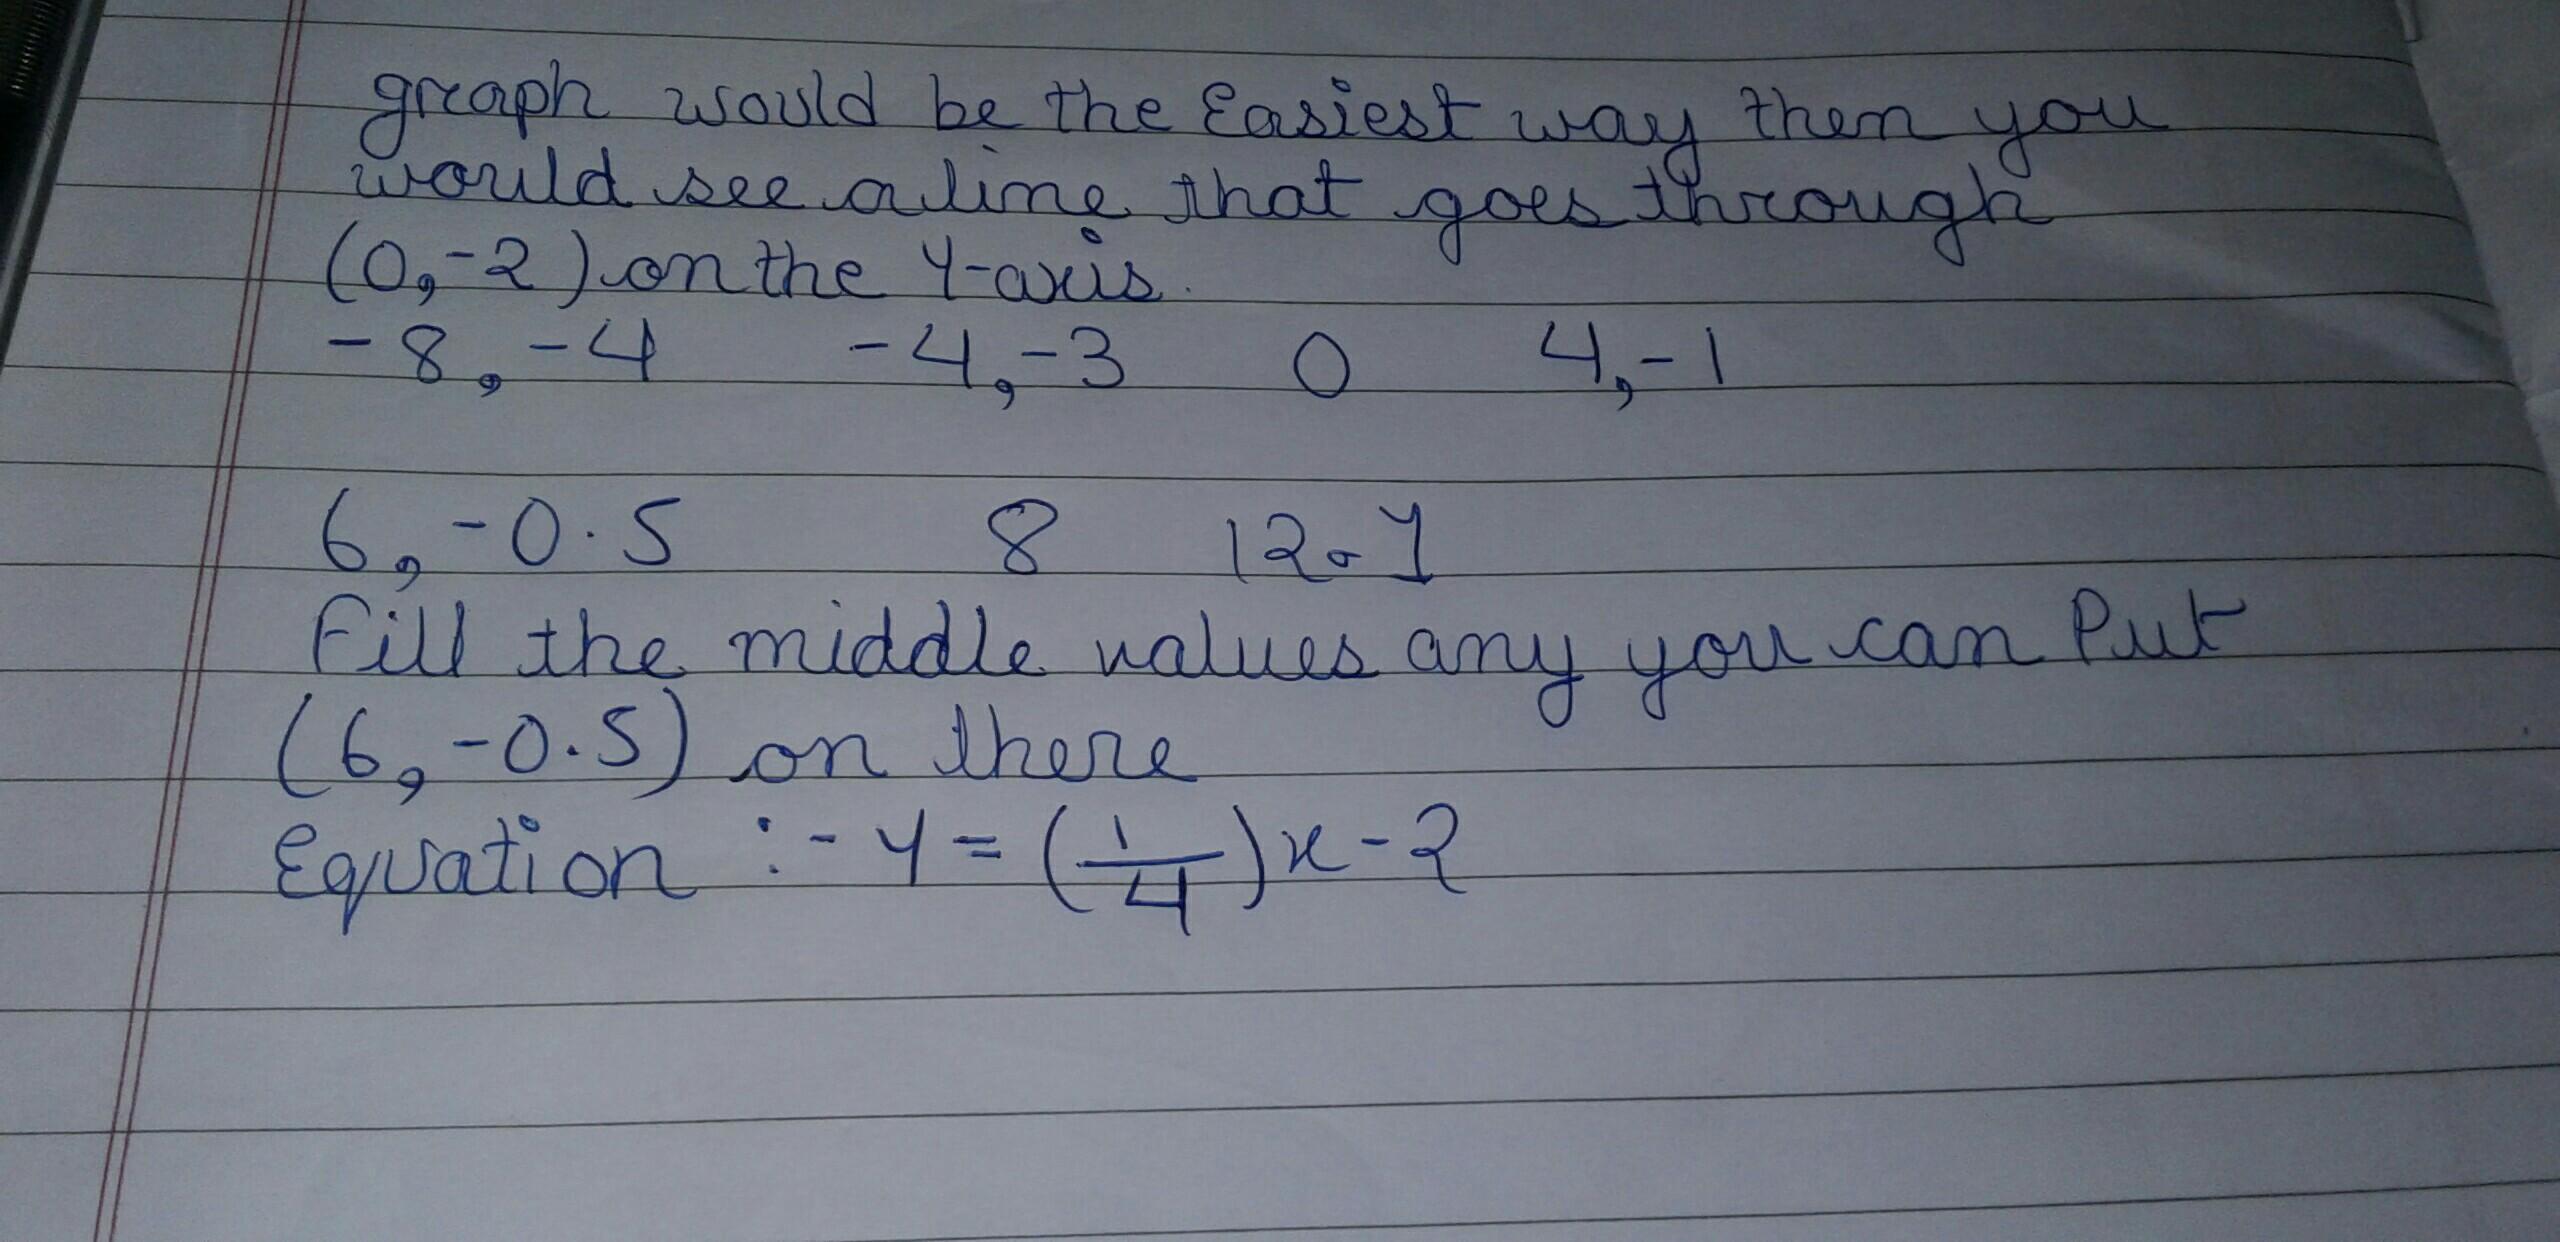 graph would be the Easiest way then you
would see a line that goes through
(0,-2) on the Y-axis.
-8,-4 -4,-3 0 4,-1
6,-0.5 8 12,1
Fill the middle values any you can Put
(6,-0.5) on there
Equation :- y = (1/4)x-2